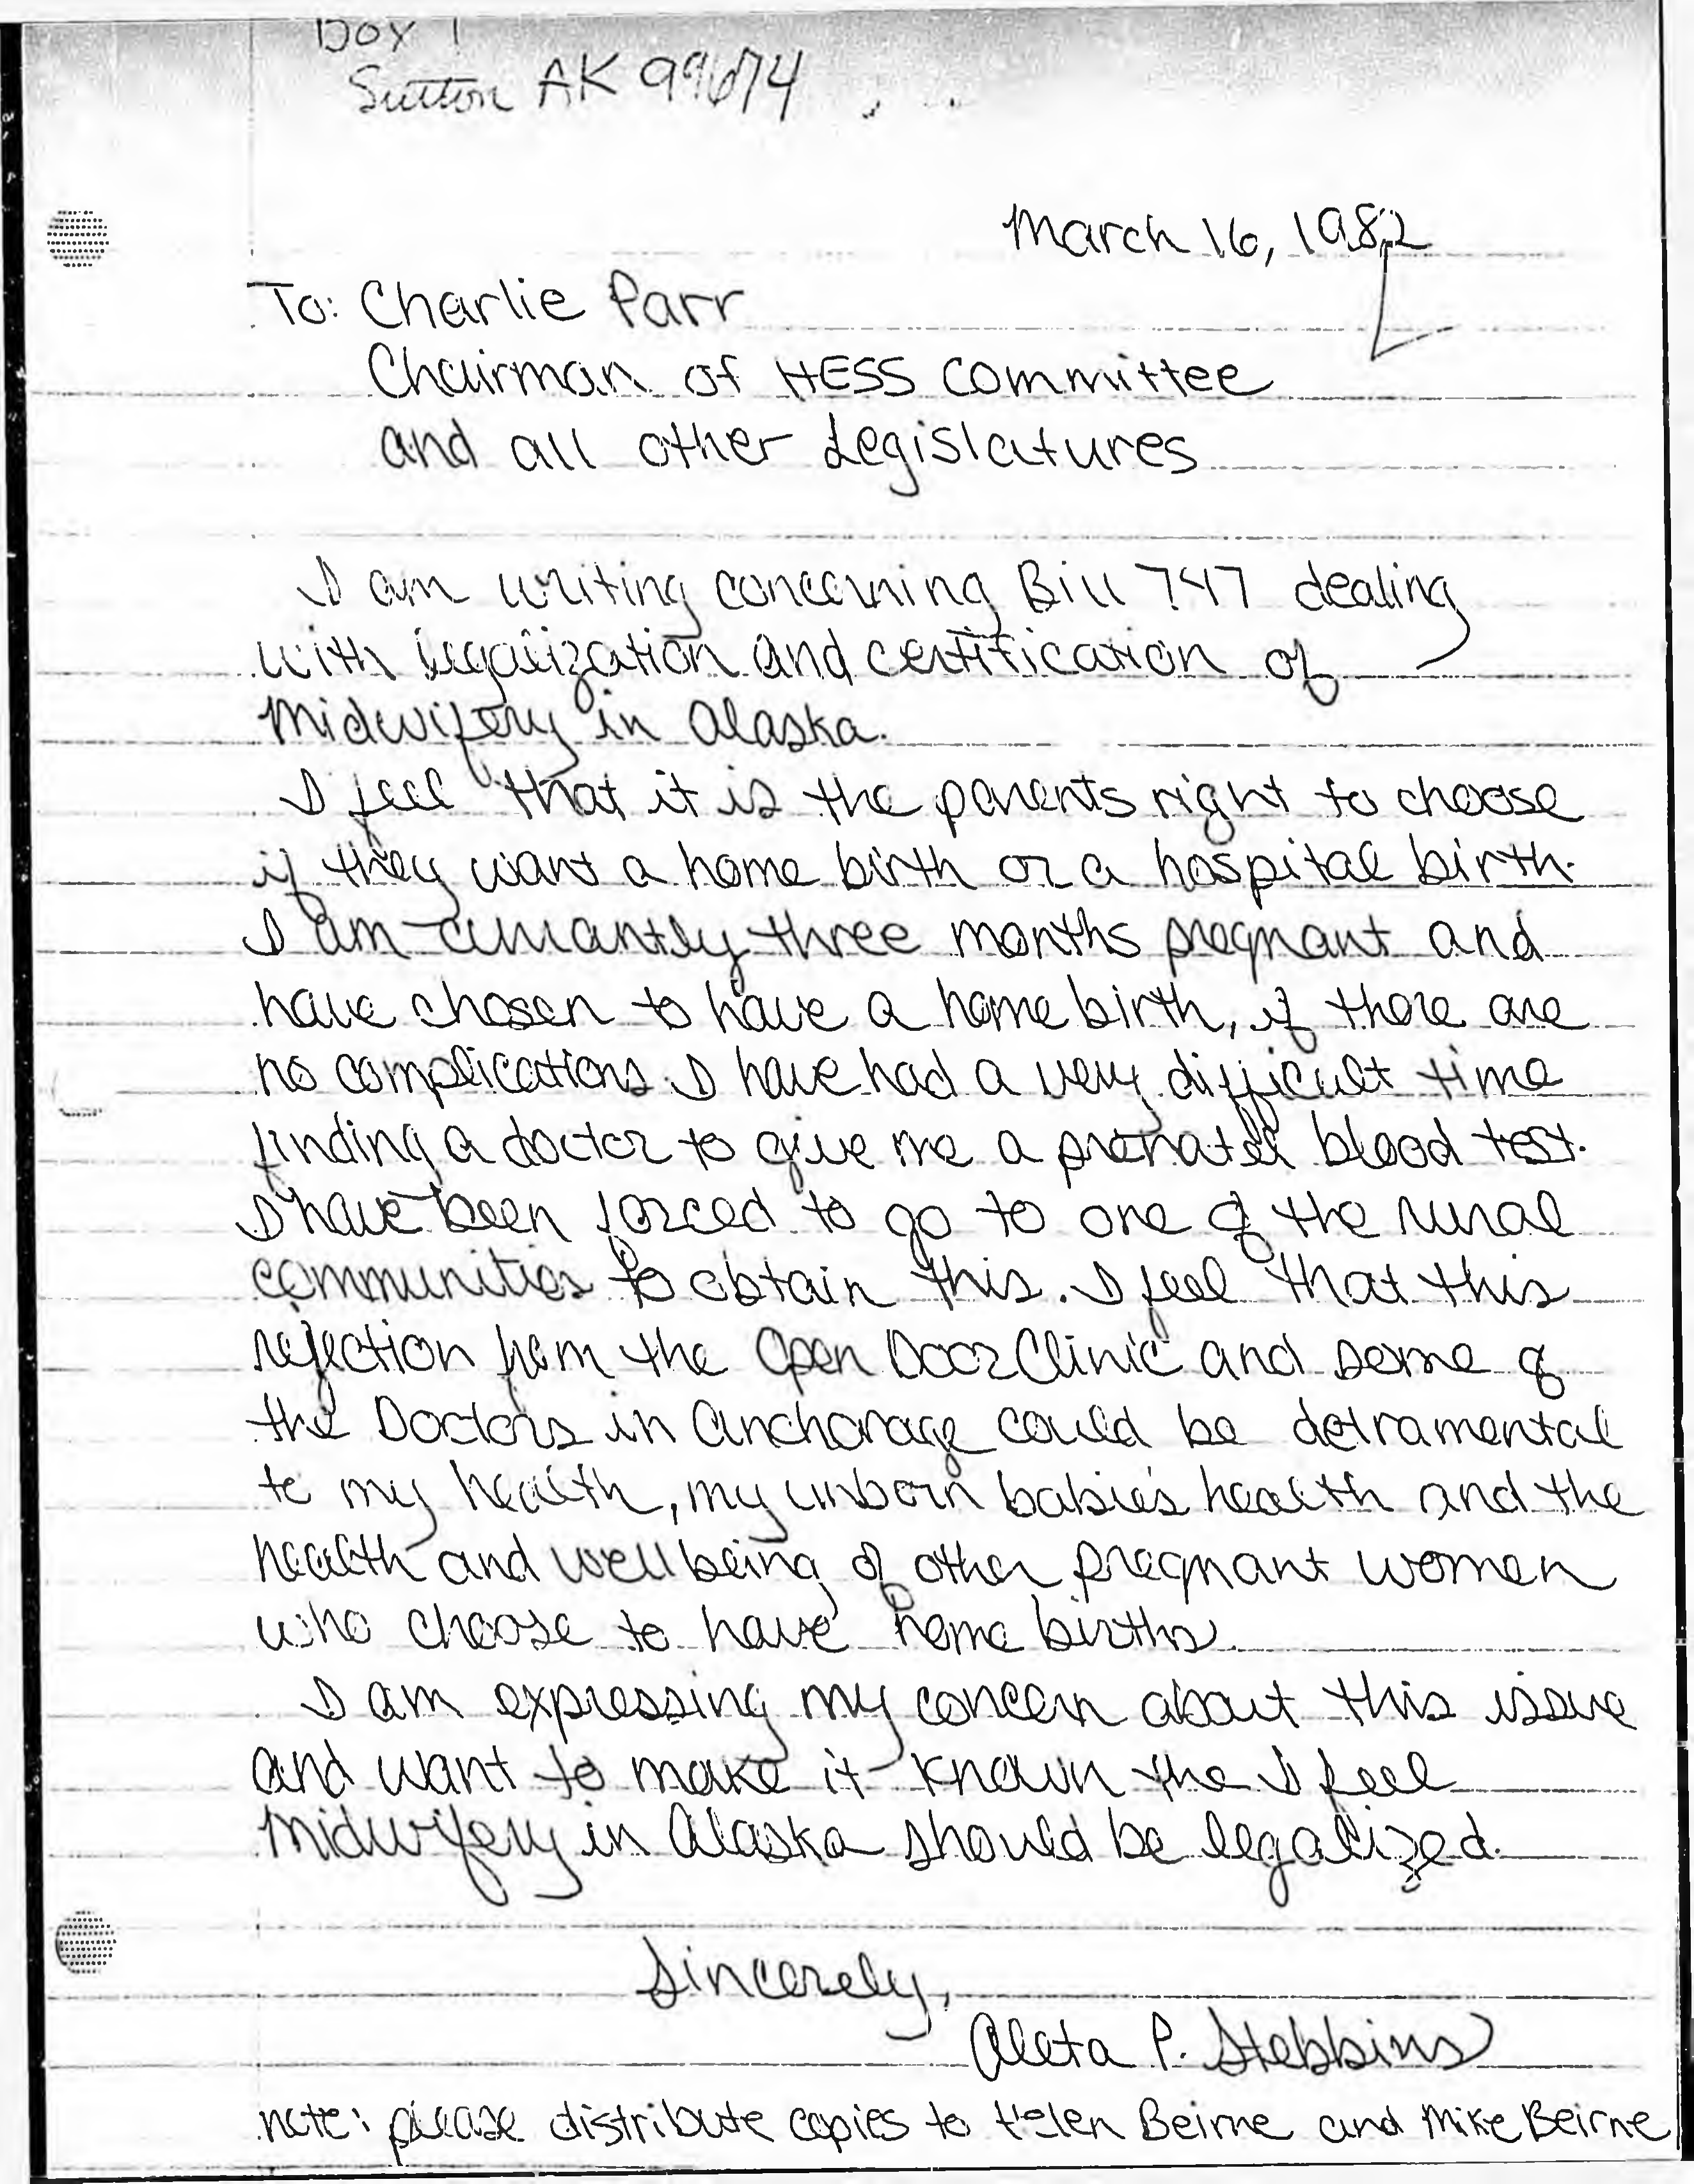 Box 1
Sutton AK 99674
March 16, 1982
To: Charlie Parr
Chairman of HESS committee
and all other Legislatures
I am writing concerning Bill 747 dealing
with legalization and certification of
midwifery in Alaska.
I feel that it is the parents right to choose
if they want a home birth or a hospital birth.
I am currantly three months pregnant and
have chosen to have a home birth, if there are
no complications. I have had a very difficult time
finding a doctor to give me a prenatal blood test.
I have been forced to go to one of the rural
communities to obtain this. I feel that this
rejection from the Open Door Clinic and some of
the Doctors in Anchorage could be detramental
to my health, my unborn babies health and the
health and wellbeing of other pregnant women
who choose to have home births.
I am expressing my concern about this issue
and want to make it known the I feel
midwifery in Alaska should be legalized.
Sincerely,
Aleta P. Stebbins
note: please distribute copies to Helen Beirne and Mike Beirne